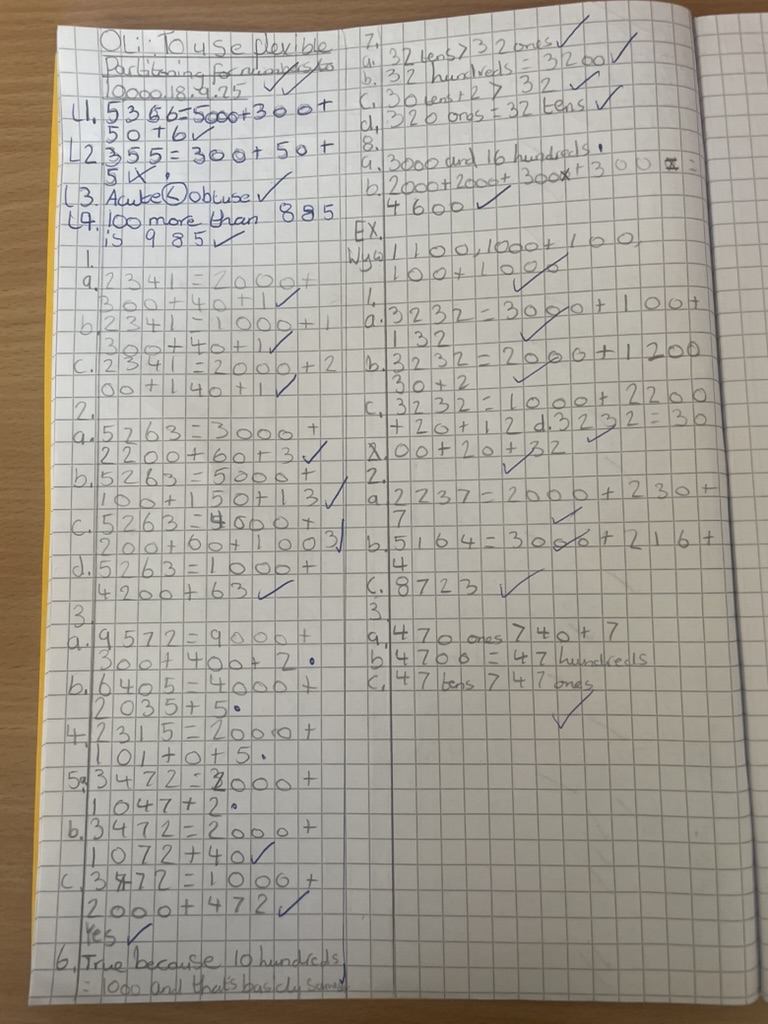 OLi: To use flexible
Partitioning for numbers to
10000 18.9.25
L1. 5356=5000+300+
50+6
L2 355=300+50+
5
L3. Acute < Obtuse
L4. 100 more than 885
is 985
1.
a. 2341=2000+
300+40+1
b. 2341=1000+1
300+40+1
c. 2341=2000+2
00+140+1
2.
a. 5263=3000+
2200+60+3
b. 5263=5000+
100+150+13
c. 5263=4000+
200+60+1003
d. 5263=1000+
4200+63
3
a. 9572=9000+
300+400+2
b. 6405=4000+
2035+5
4. 2315=2000+
101+0+5
5a. 3472=2000+
1047+2
b. 3472=2000+
1072+40
c. 3472=1000+
2000+472
Yes
6. True because 10 hundreds
=1000 and that's basicly
7.
a. 32 tens > 32 ones
b. 32 hundreds = 3200
c. 30 tens + 2 > 32
d. 320 ones = 32 tens
8.
a. 3000 and 16 hundreds
b. 2000+2000+300+300=
4600
EX.
1100, 1000+100,
100+1000
1.
a. 3232=3000+100+
132
b. 3232=2000+1200
30+2
c. 3232=1000+2200
+20+12 d. 3232=30
00+20+32
2.
a 2237=2000+230+
7
b. 5164=3000+216+
4
c. 8723
3
a. 470 ones > 40+7
b 4700=47 hundreds
c. 47 tens > 47 ones